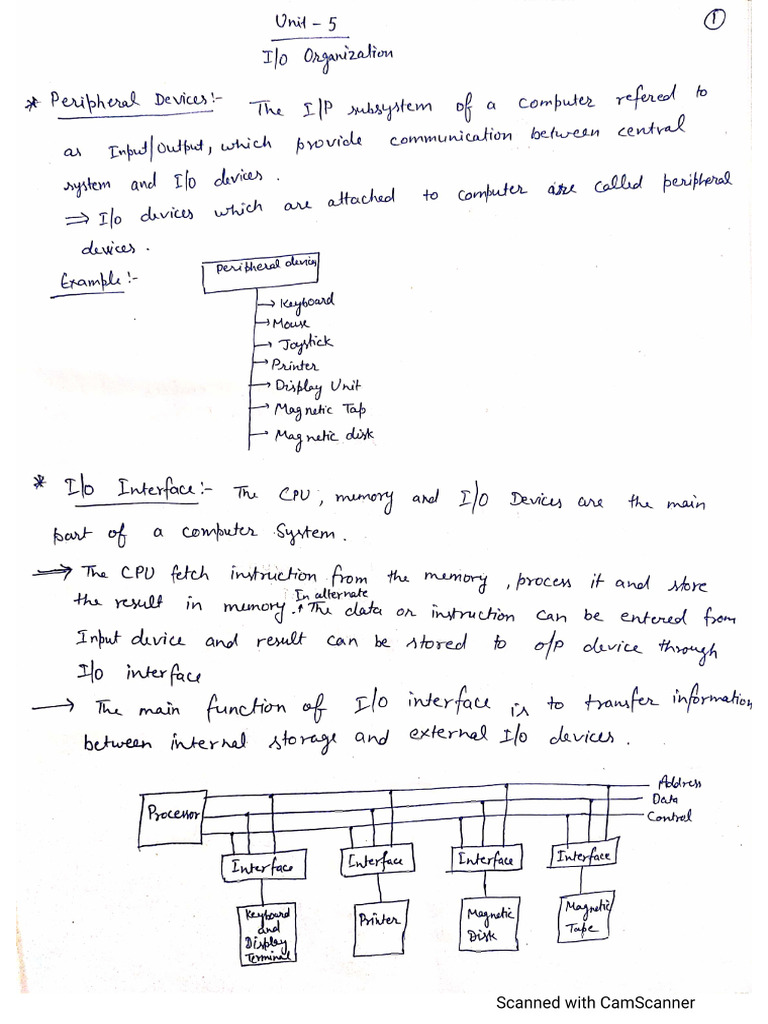 Unit - 5
1
I/o Organization
* Peripheral Devices:- The I/P subsystem of a computer refered to
as Input/Output, which provide communication between central
system and I/o devices.
⇒ I/o devices which are attached to computer are called peripheral
devices.
Example:-
Peripheral devices
→ Keyboard
→ Mouse
→ Joystick
→ Printer
→ Display Unit
→ Magnetic Tap
→ Magnetic disk
* I/o Interface:- The CPU, memory and I/O Devices are the main
part of a computer System.
⟹ The CPU fetch instruction from the memory, process it and store
the result in memory. In alternate The data or instruction can be entered from
Input device and result can be stored to o/p device through
I/o interface
→ The main function of I/o interface is to transfer information
between internal storage and external I/o devices.
Address
Data
Control
Processor
Interface Interface Interface Interface
Keyboard and Display Terminal
Printer
Magnetic Disk
Magnetic Tape
Scanned with CamScanner